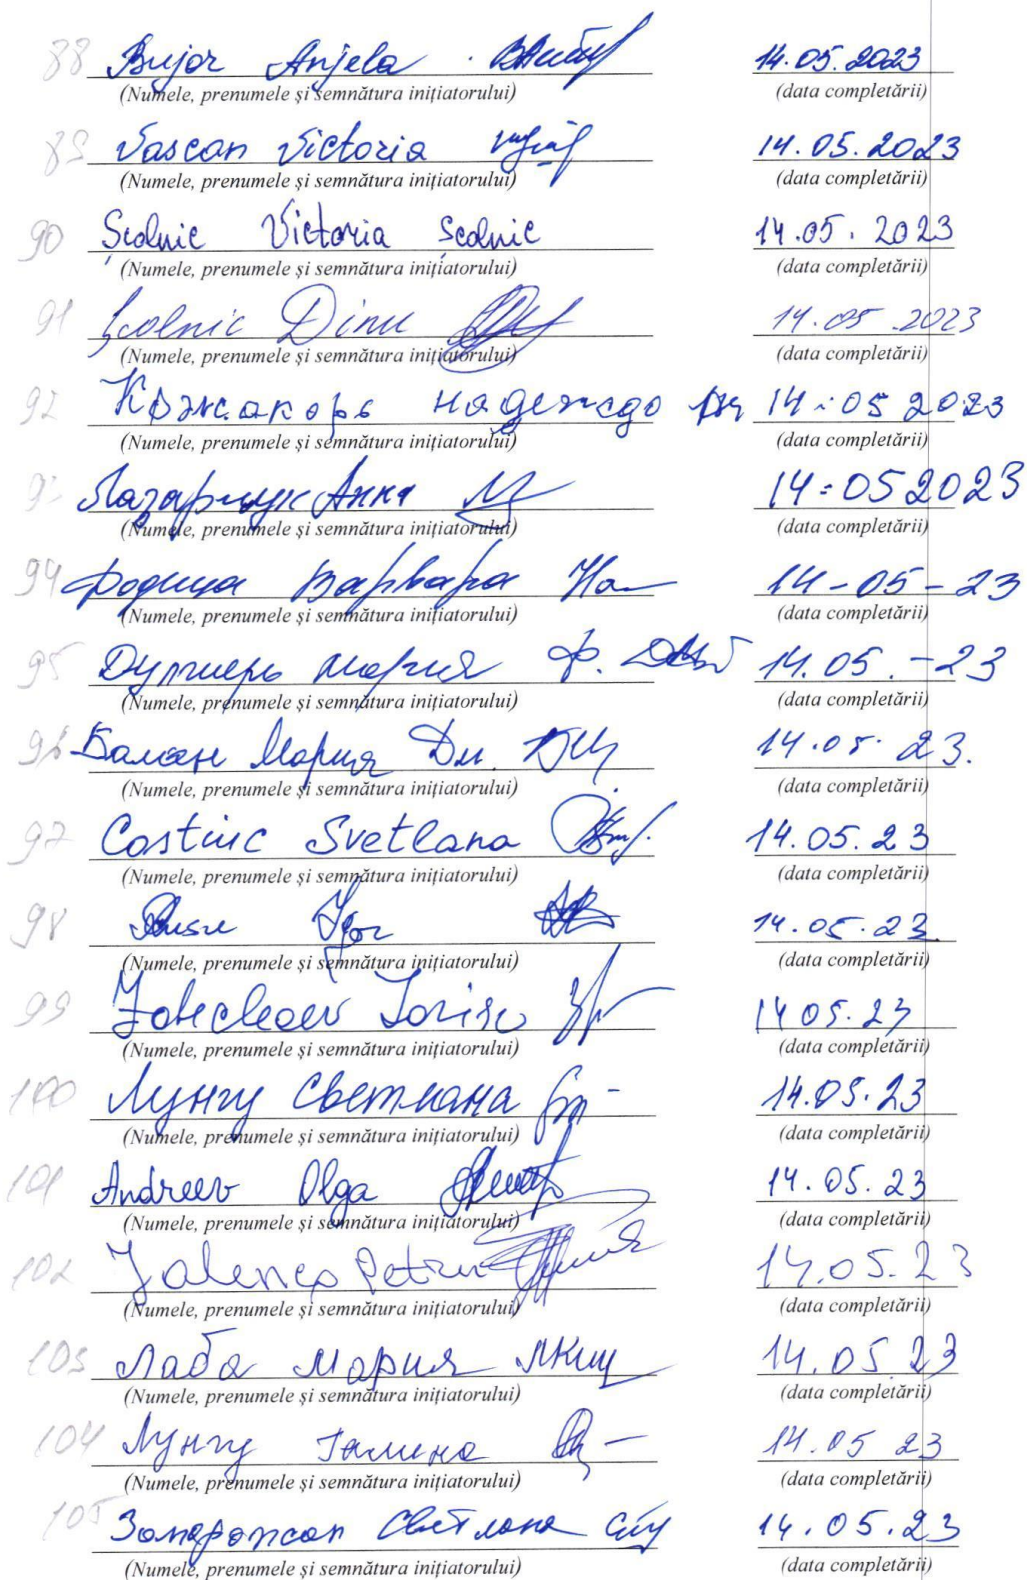 88 Bujor Anjela 14.05.2023
(Numele, prenumele și semnătura inițiatorului) (data completării)
89 Vascan Victoria 14.05.2023
(Numele, prenumele și semnătura inițiatorului) (data completării)
90 Școlnic Victoria Școlnic 14.05.2023
(Numele, prenumele și semnătura inițiatorului) (data completării)
91 Școlnic Dinu 14.05 2023
(Numele, prenumele și semnătura inițiatorului) (data completării)
92 надеждо 14.05 2023
(Numele, prenumele și semnătura inițiatorului) (data completării)
93 Лазарчук Анна 14:05 2023
(Numele, prenumele și semnătura inițiatorului) (data completării)
94 Варвара 14-05-23
(Numele, prenumele și semnătura inițiatorului) (data completării)
95 мария 14.05.-23
(Numele, prenumele și semnătura inițiatorului) (data completării)
96 Балан Мария Дм. 14.05.23.
(Numele, prenumele și semnătura inițiatorului) (data completării)
97 Costiuc Svetlana 14.05.23
(Numele, prenumele și semnătura inițiatorului) (data completării)
98 Igor 14.05.23.
(Numele, prenumele și semnătura inițiatorului) (data completării)
99 14 05.23
(Numele, prenumele și semnătura inițiatorului) (data completării)
100 Лунгу Светлана 14.05.23
(Numele, prenumele și semnătura inițiatorului) (data completării)
101 Andreev Olga 14.05.23
(Numele, prenumele și semnătura inițiatorului) (data completării)
102 Petru 14.05.23
(Numele, prenumele și semnătura inițiatorului) (data completării)
103 Лаба Мария 14.05 23
(Numele, prenumele și semnătura inițiatorului) (data completării)
104 Лунгу Галина 14.05 23
(Numele, prenumele și semnătura inițiatorului) (data completării)
105 Светлана 14.05.23
(Numele, prenumele și semnătura inițiatorului) (data completării)